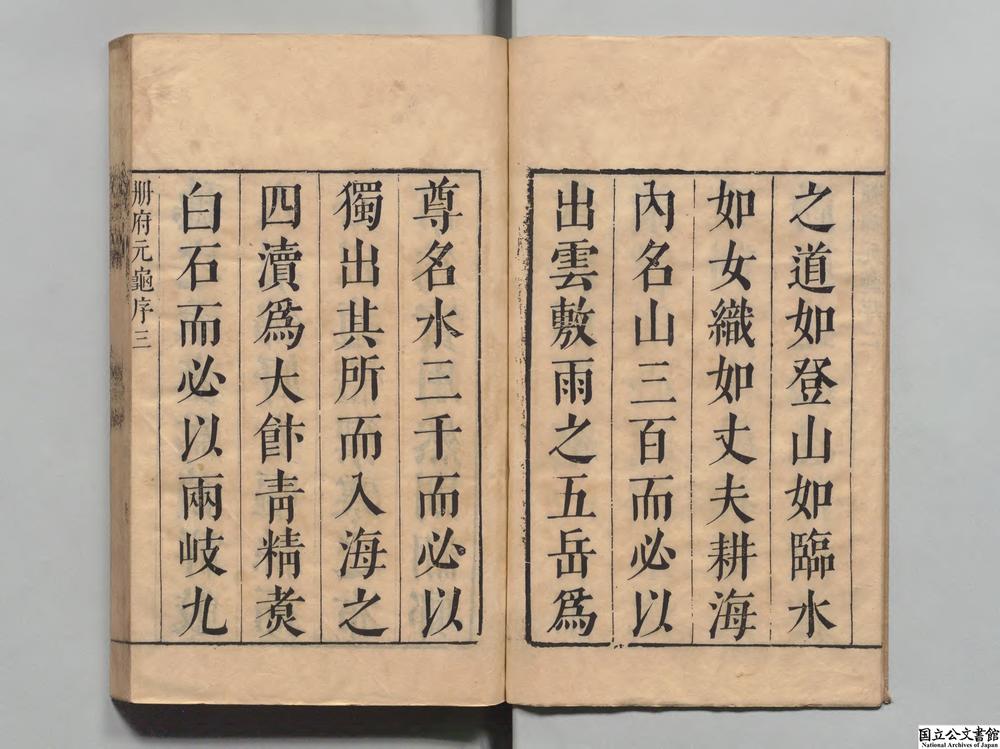 之道如登山如臨水
如女織如丈夫耕海
內名山三百而必以
出雲敷雨之五岳爲
尊名水三千而必以
獨出其所而入海之
四瀆爲大飰青精煑
白石而必以兩岐九
册府元龜序
三
国立公文書館
National Archives of Japan